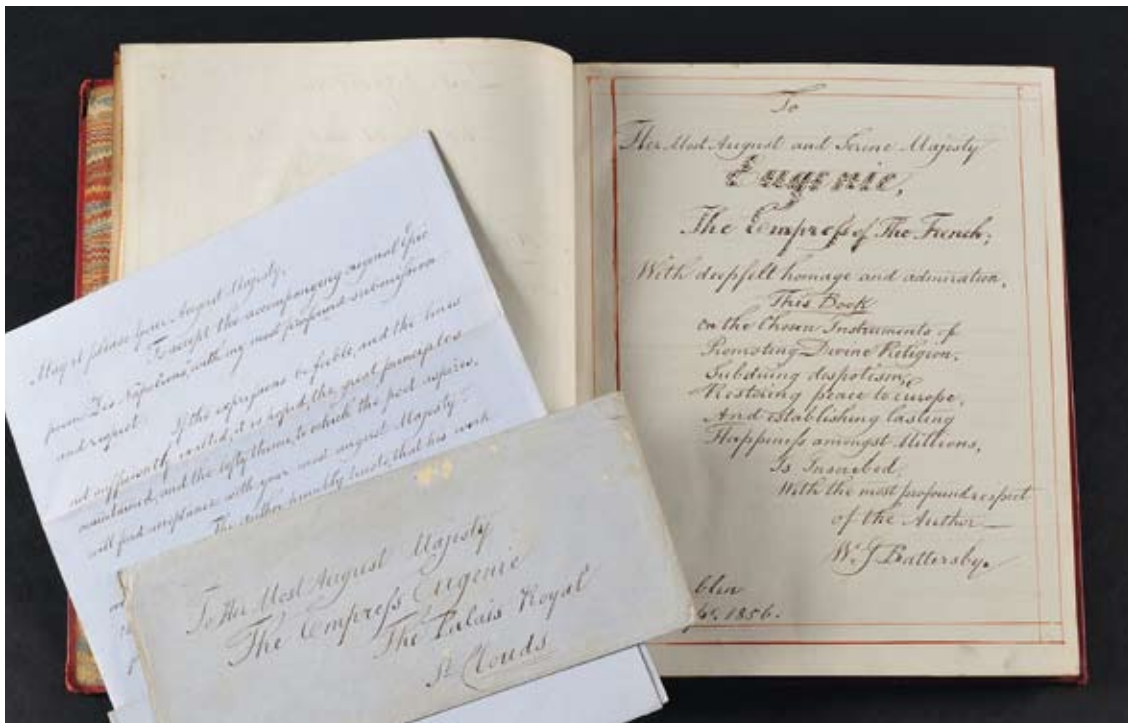 May it please your August Majesty,
To accept the accompanying original Epic
poem Les Napoléons, with my most profound submission
and respect.
If the expressions be feeble, and the lines
not sufficiently exalted, it is hoped, the great principles
maintained, and the lofty theme, to which the poet aspires,
will find acceptance with your most august Majesty.
The Author humbly trusts, that his work
To Her Most August Majesty
The Empress Eugenie
The Palais Royal
St. Clouds
To
Her Most August and Serine Majesty
Eugenie,
The Empress of The French;
With deepfelt homage and admiration,
This Book
on the Chosen Instruments of
Promoting Divine Religion,
Subduing despotism,
Restoring peace to europe,
And establishing lasting
Happiness amongst Millions,
Is Inscribed,
With the most profound respect
of the Author—
W. J. Battersby.
blin
1856.